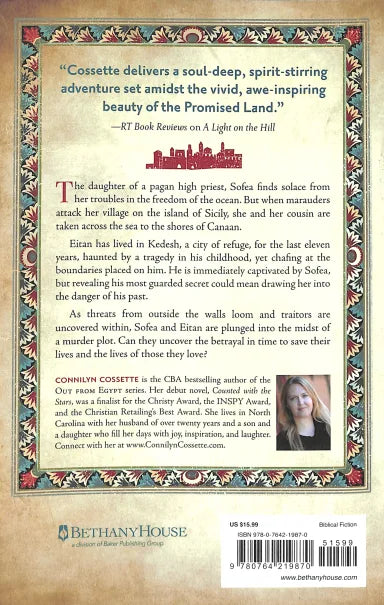 “Cossette delivers a soul-deep, spirit-stirring
adventure set amidst the vivid, awe-inspiring
beauty of the Promised Land.”
—RT Book Reviews on A Light on the Hill
The daughter of a pagan high priest, Sofea finds solace from
her troubles in the freedom of the ocean. But when marauders
attack her village on the island of Sicily, she and her cousin are
taken across the sea to the shores of Canaan.
Eitan has lived in Kedesh, a city of refuge, for the last eleven
years, haunted by a tragedy in his childhood, yet chafing at the
boundaries placed on him. He is immediately captivated by Sofea,
but revealing his most guarded secret could mean drawing her into
the danger of his past.
As threats from outside the walls loom and traitors are
uncovered within, Sofea and Eitan are plunged into the midst of
a murder plot. Can they uncover the betrayal in time to save their
lives and the lives of those they love?
CONNILYN COSSETTE is the CBA bestselling author of the
OUT FROM EGYPT series. Her debut novel, Counted with the
Stars, was a finalist for the Christy Award, the INSPY Award,
and the Christian Retailing’s Best Award. She lives in North
Carolina with her husband of over twenty years and a son and
a daughter who fill her days with joy, inspiration, and laughter.
Connect with her at www.ConnilynCossette.com.
BETHANYHOUSE
a division of Baker Publishing Group
US $15.99 Biblical Fiction
ISBN 978-0-7642-1987-0
51599
9 780764 219870
www.bethanyhouse.com